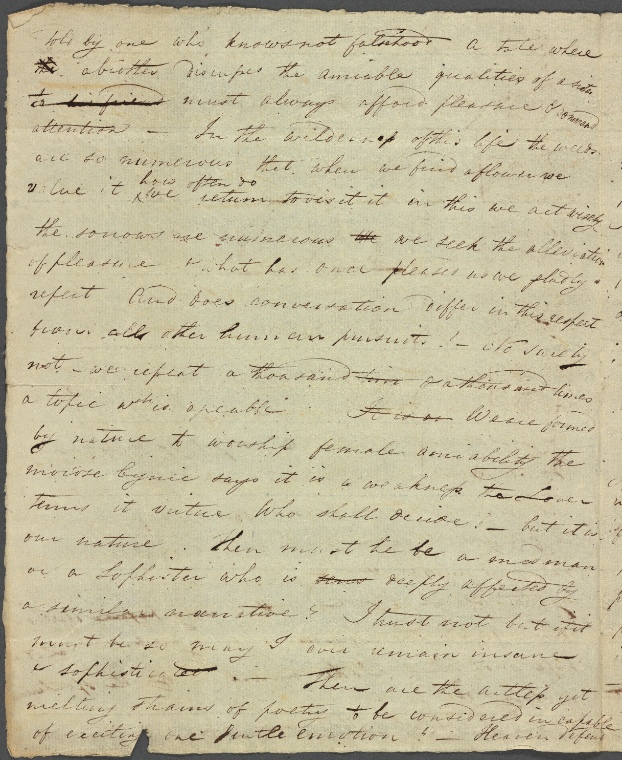 told by one who knows not falsehood A tale where
the a brother discribes the amiable qualities of a sister
to his friend must always afford pleasure & command
attention — In the wilderness of this life the weeds
are so numerous that when we find a flower we
value it how often do we return to visit it in this we act wisely
the sorrows are numerous we seek the alleviation
of pleasure & what has once pleased us we gladly
repeat And does conversation differ in this respect
from all other human pursuits! — No surely
not — we repeat a thousand time & a thousand times
a topic wh is agreable It is our We are formed
by nature to worship female amiability the
morose Cynic says it is a weakness the Lover
terms it virtue Who shall decide! — but it is
our nature. Then must he be a mad man
or a Sophister who is deeply affected by
a similar narrative? I trust not but if it
must be so may I ever remain insane
& sophisticated! — Then are the artless yet
melting strains of poetry to be considered incapable
of exciting one gentle emotion! — Heaven defend